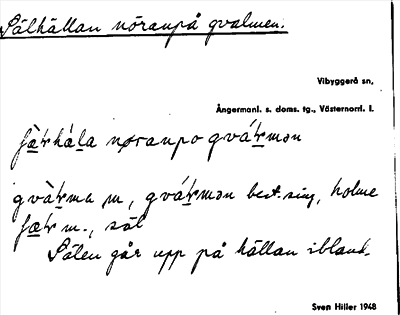 Sälhällan nöranpå qvalmen.
Vibyggerå sn,
Ångermanl. s. doms. tg., Västernorrl. l.
fæ̀ɽhá̱la nøranpo gváɽmən
gvàɽma m, gváɽmən best. sing, holme
fæɽ m., säl
Sälen går upp på hällan ibland.
Sven Hiller 1948